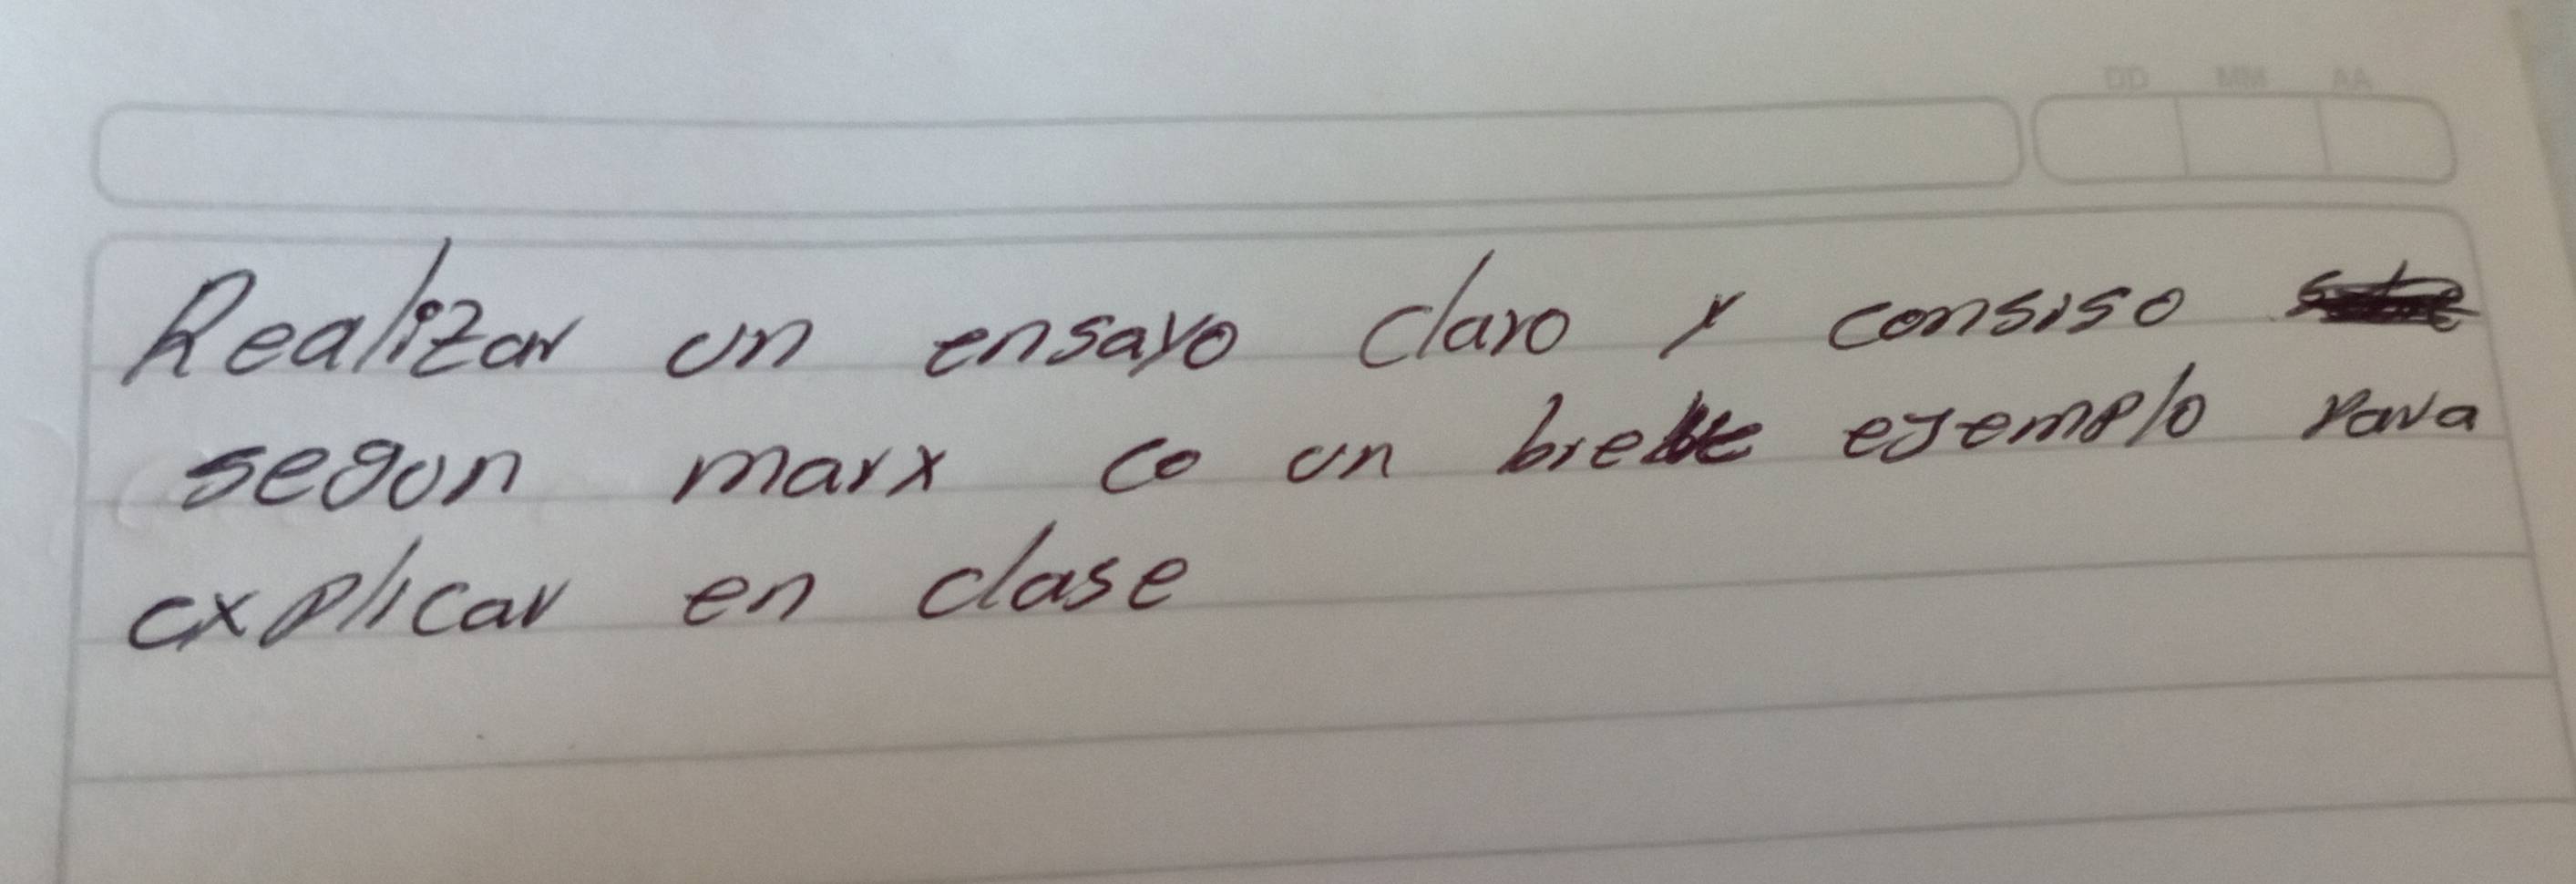 DD MM AA
Realizar un ensayo claro y consiso
segun marx co un breve ejemplo para
explicar en clase